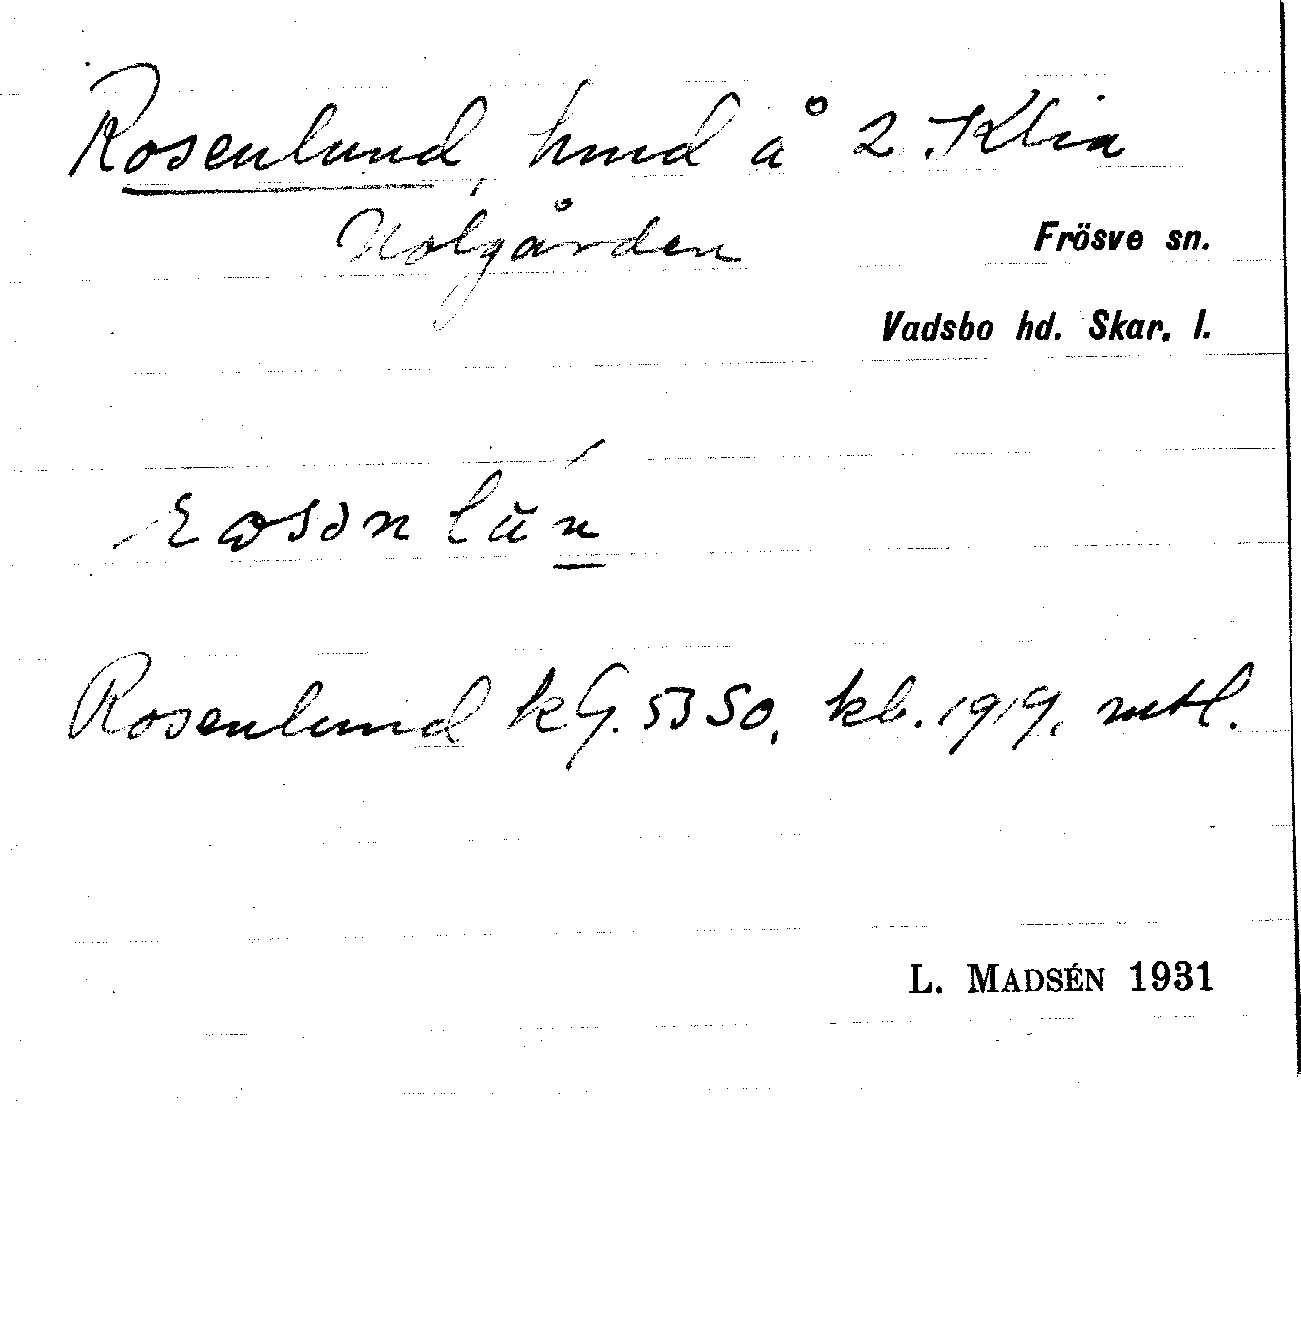 Rosenlund, hmd å 2 Klia
Nolgården
Frösve sn.
Vadsbo hd. Skar. l.
Rosenlund kG. 53 So, kb. 1919, mtl.
L. MADSÉN 1931